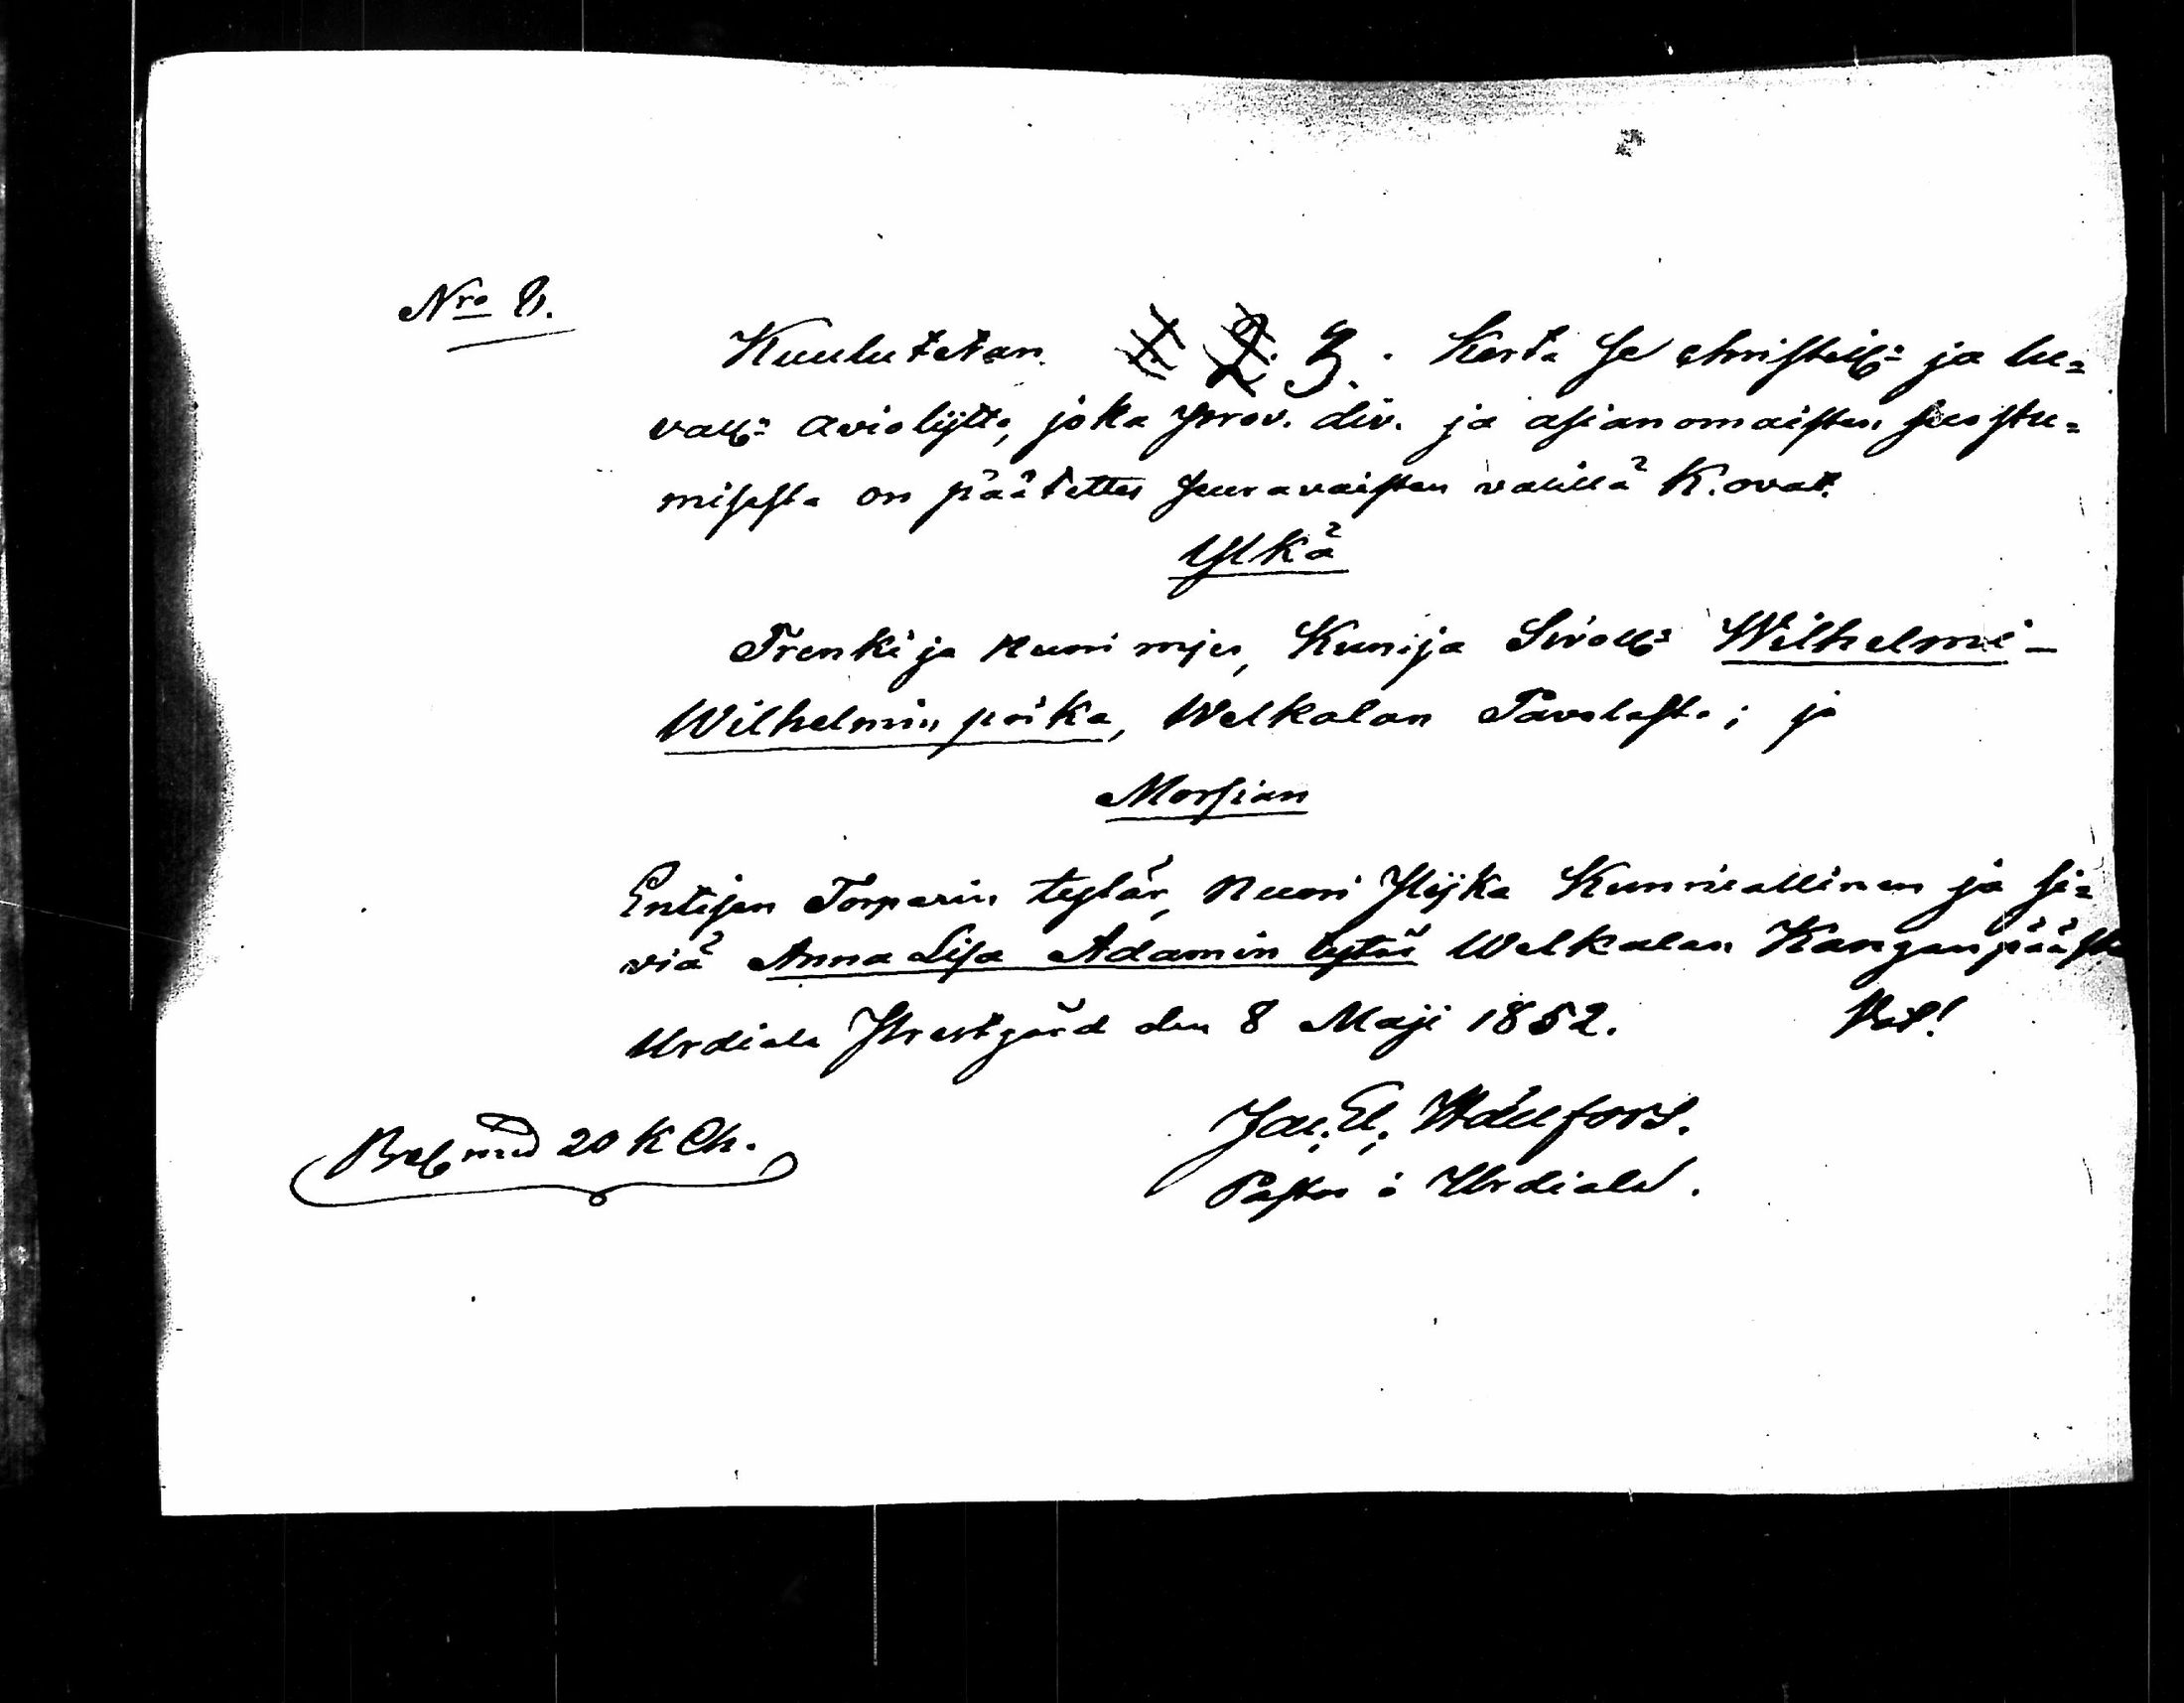 Nro 8.
Kuulutetan 1. 2. 3. Kerta se christill: ja lu=
vall: avioliitto, joka prov. div. ja asianomaisten suostu=
misesta on päätetty seuravaisten välillä K. ovat.
Ylkä
Trenki ja nuori mies, Kunija Sivoll: Wilhelmi-
Wilhelmin poika, Welkalan Pavolasta; ja
Morsian
Entisen Torparin tytär, nuori Piijka Kunniallinen ja si=
viä Anna Lisa Adamin tytär Welkalan Kanganpäästä
Urdiala Prestgård den 8 Maji 1852. Vot!
Jac. El. Wallfors.
Pastor i Urdiala.
Bref med 20 K Ch.